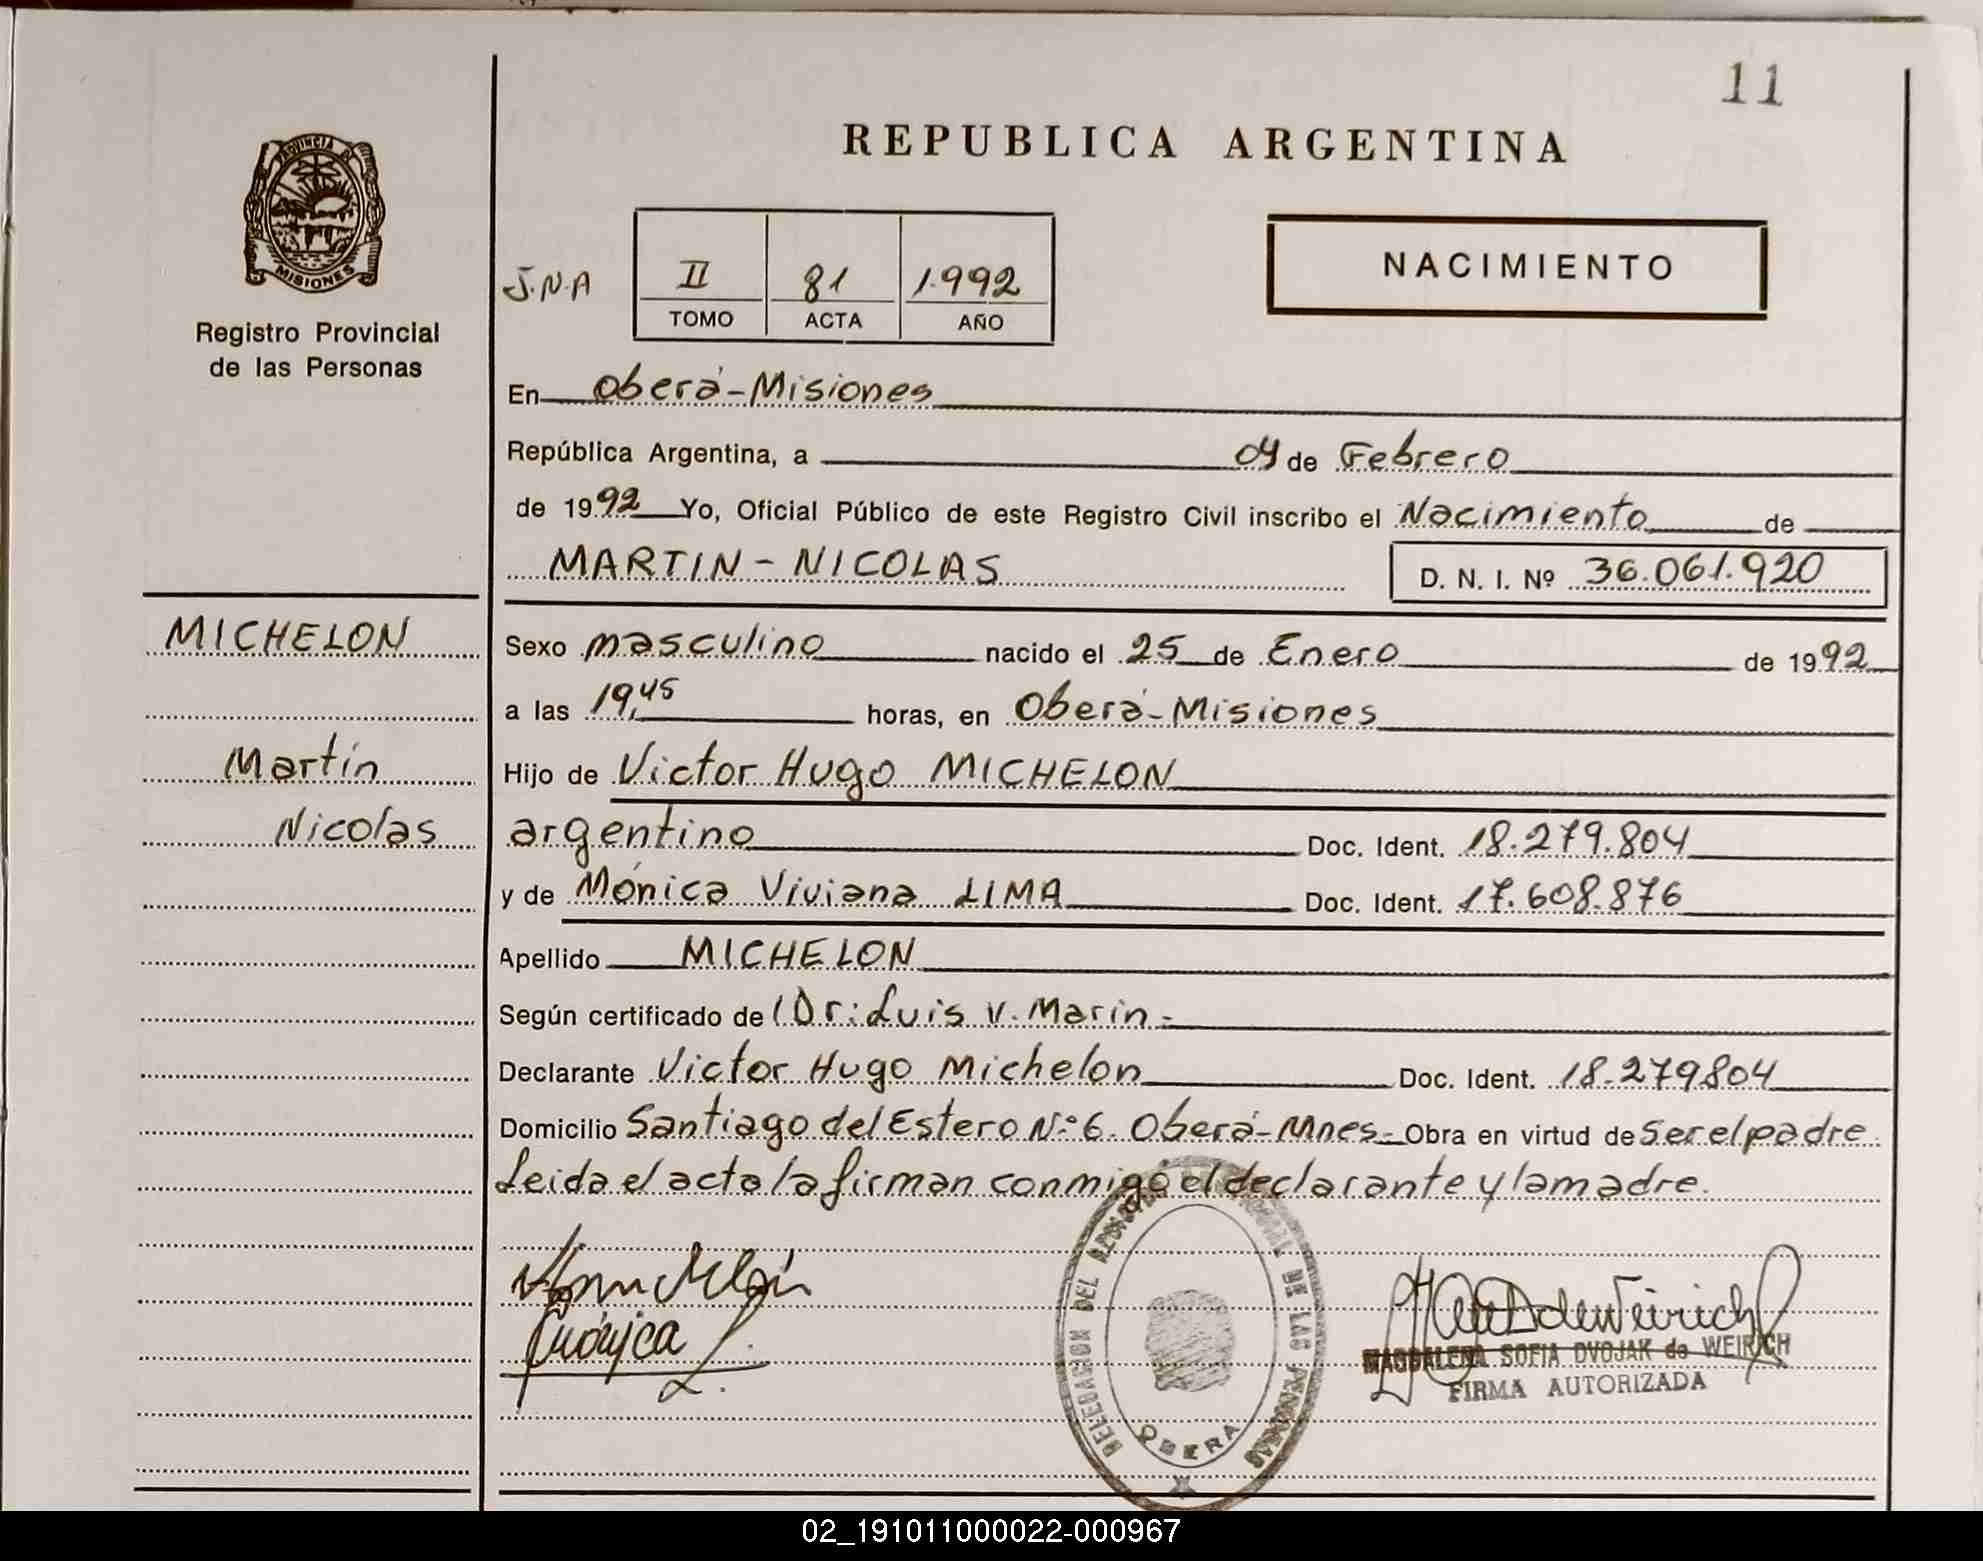 11
REPUBLICA ARGENTINA
PROVINCIA DE
MISIONES
Registro Provincial
de las Personas
J.N.A
II 81 1.992
TOMO ACTA AÑO
NACIMIENTO
En Oberá-Misiones
República Argentina, a 04 de Febrero
de 1992 Yo, Oficial Público de este Registro Civil inscribo el Nacimiento de
MARTIN-NICOLAS D. N. I. Nº 36.061.920
MICHELON
Martín
Nicolas
Sexo masculino nacido el 25 de Enero de 1992
a las 19,45 horas, en Oberá-Misiones
Hijo de Victor Hugo MICHELON
argentino Doc. Ident. 18.279.804
y de Mónica Viviana LIMA Doc. Ident. 17.608.876
Apellido MICHELON
Según certificado de Dr: Luis V. Marin.-
Declarante Victor Hugo Michelon Doc. Ident. 18.279804
Domicilio Santiago del Estero Nº6. Oberá-Mnes- Obra en virtud de Ser el padre.
Leida el acta la firman conmigo el declarante y la madre.
Mónica L.
DELEGACION DEL REGISTRO PROVINCIAL DE LAS PERSONAS
OBERA
MAGDALENA SOFIA DVOJAK de WEIRICH
FIRMA AUTORIZADA
02_191011000022-000967